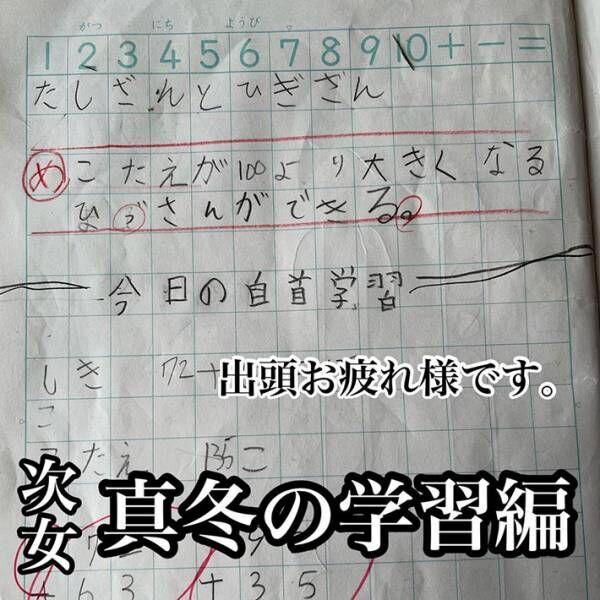 がつ にち ようび
1 2 3 4 5 6 7 8 9 10 + − =
たしざんとひぎざん
め こたえが100より大きくなる
ひ さんができる。
今日の自首学習
しき 72+
出頭お疲れ様です。
こ
たえ 135こ
次女
真冬の学習編
63 +35